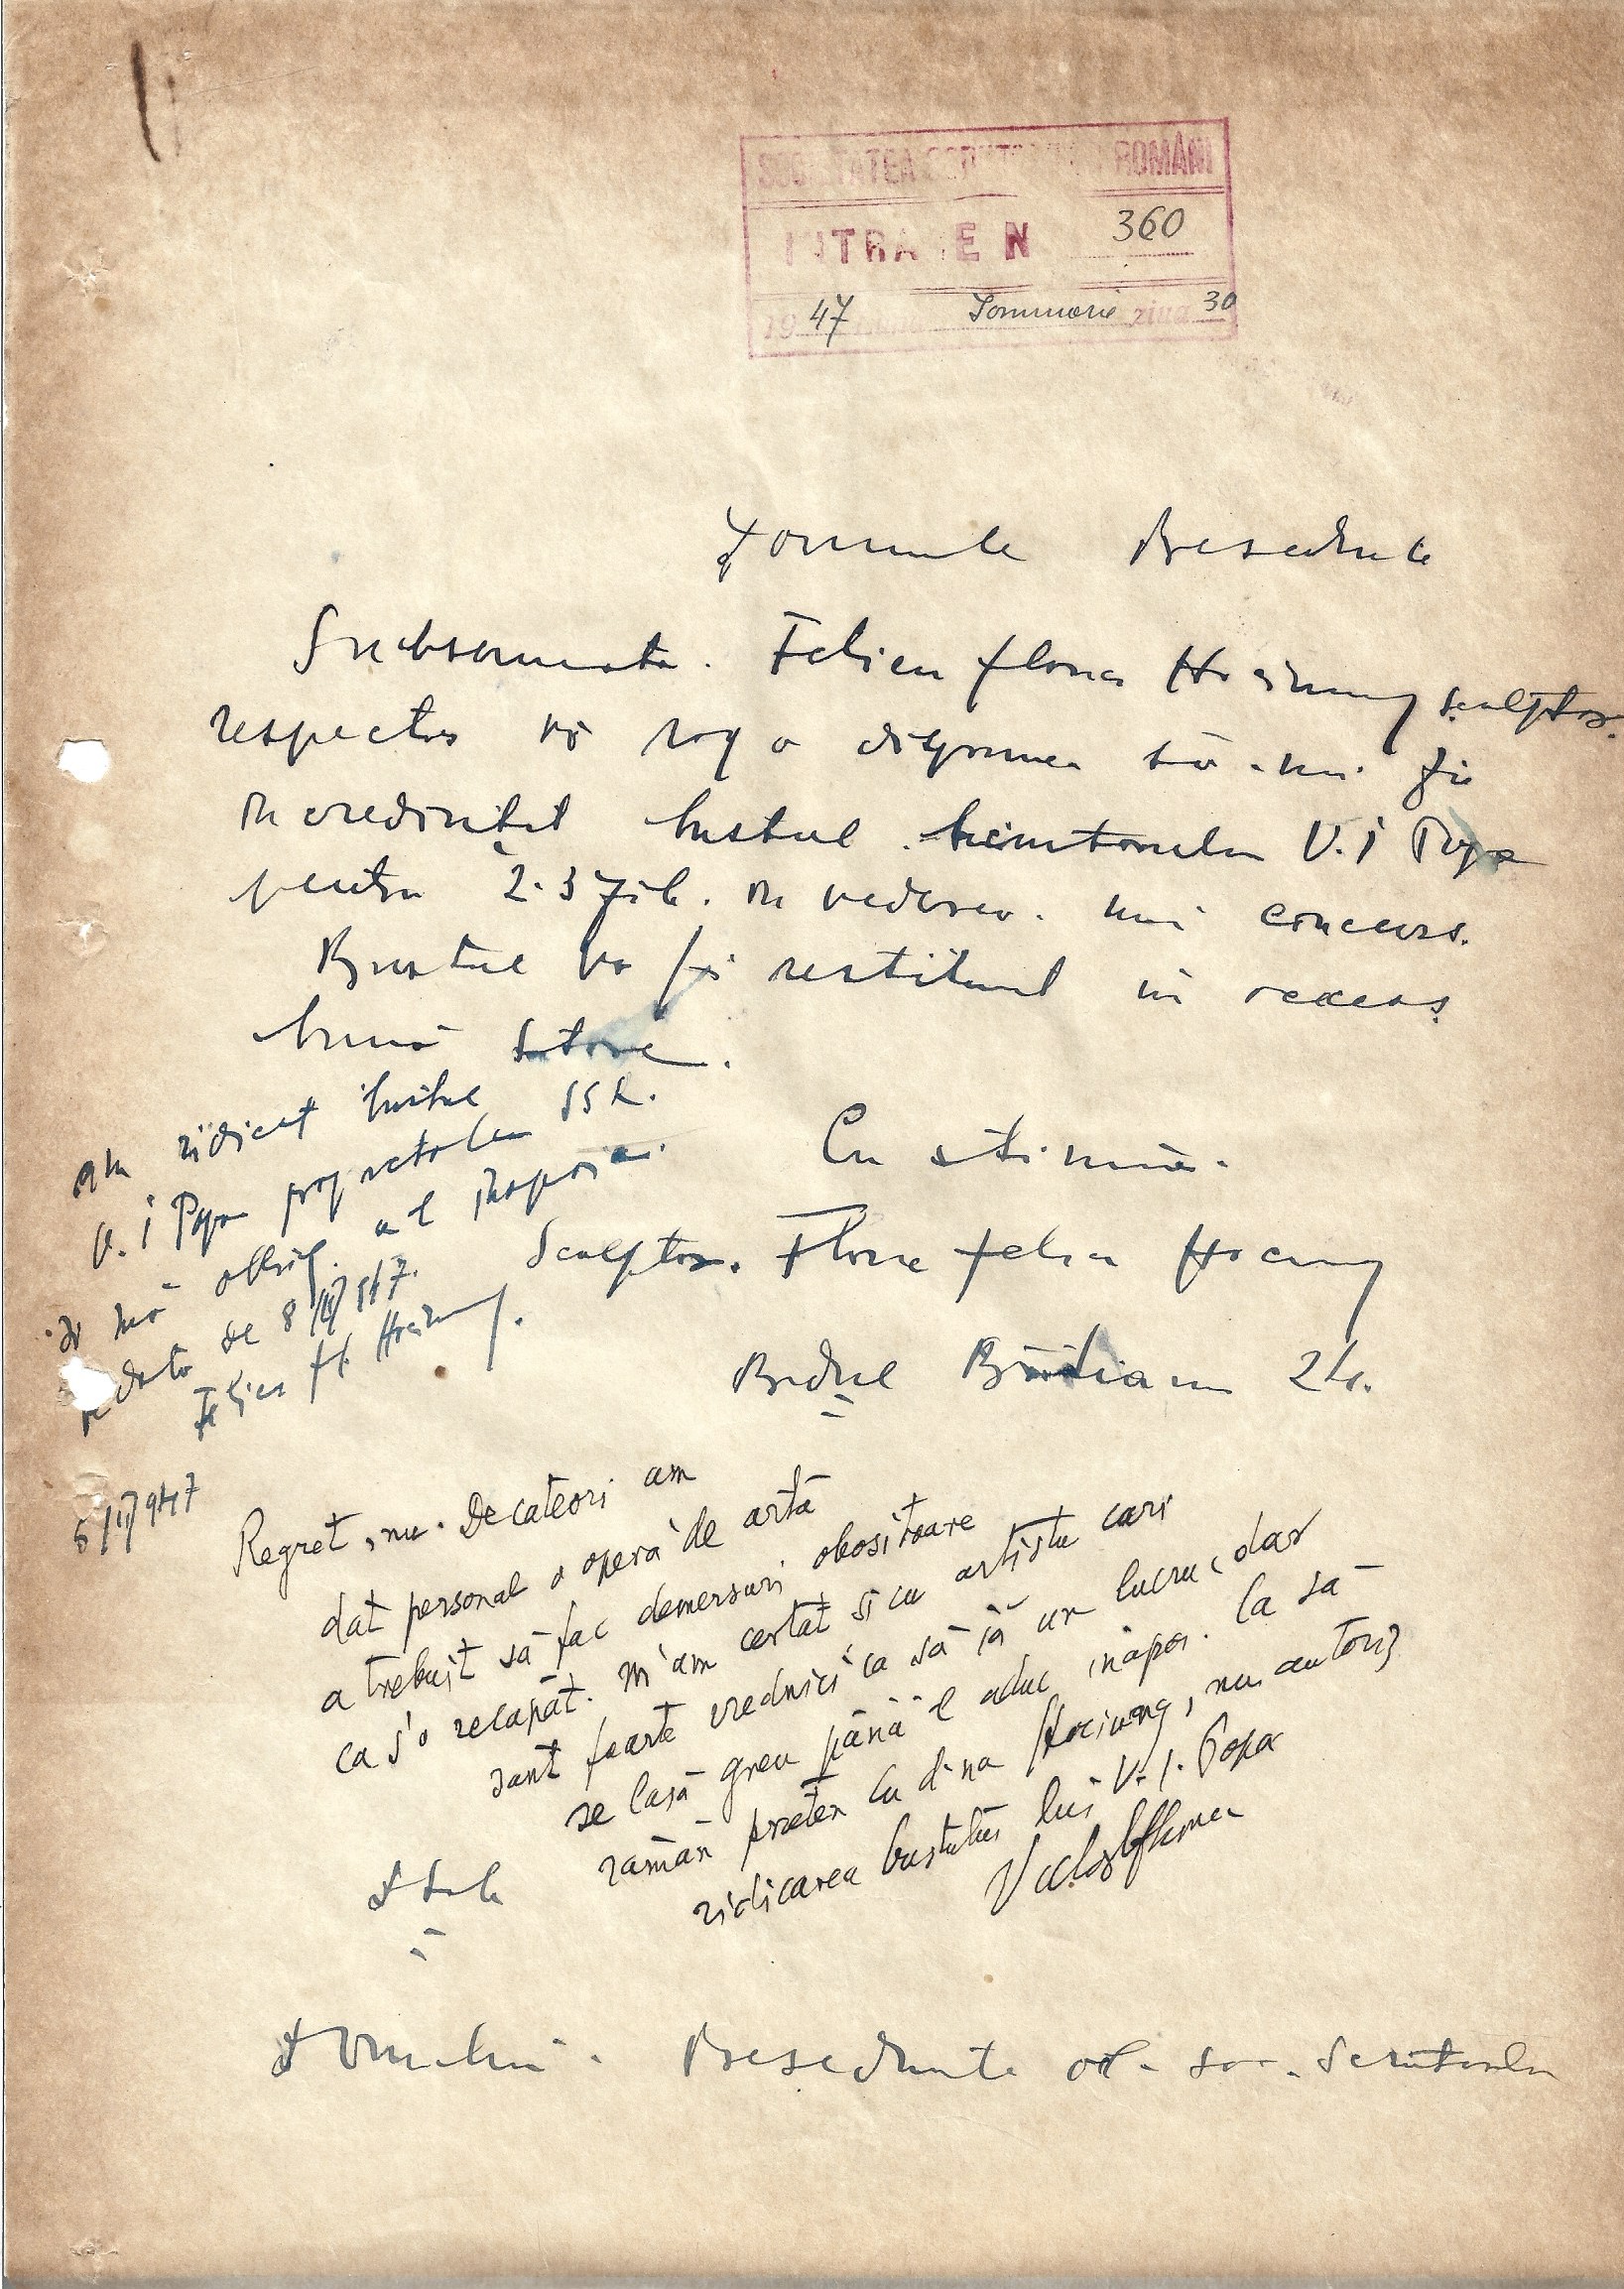 SOCIETATEA SCRIITORILOR ROMÂNI
INTRARE N 360
19 47 Ianuarie ziua 30
Domnule Presedinte
Subsemnata. Felicia Flona Hociung sculptor.
respectos vă rog a dispunea să-mi fie
incredintat bustul scriitorului V. I Popa
pentru 2-3 zile. in vederea. unui concurs.
Bustul va fi restituit in aceeas
bună stare.
Cu stimă.
Sculptor. Flona Felicia Hociung
Bvdul Brătianu 24.
Am ridicat bustul
V. I Popa proprietatea SSR.
si mă oblig. a-l inapoia.
pe data de 8/II/947.
Felicia Fl. Hociung.
6/II/947
Regret, nu. De cateori am
dat personal o operă de artă
a trebuit să fac demersuri obositoare
ca s'o recapăt. M'am certat si cu artistu cari
sant foarte vrednici ca să ia un lucru, dar
se lasă greu până 'l aduc inapoi. Ca să
rămân prieten cu d-na Hociung, nu autoriz
ridicarea bustului lui V. I. Popa
D Sale
Domnului. Presedinte al soc. Scriitorilor